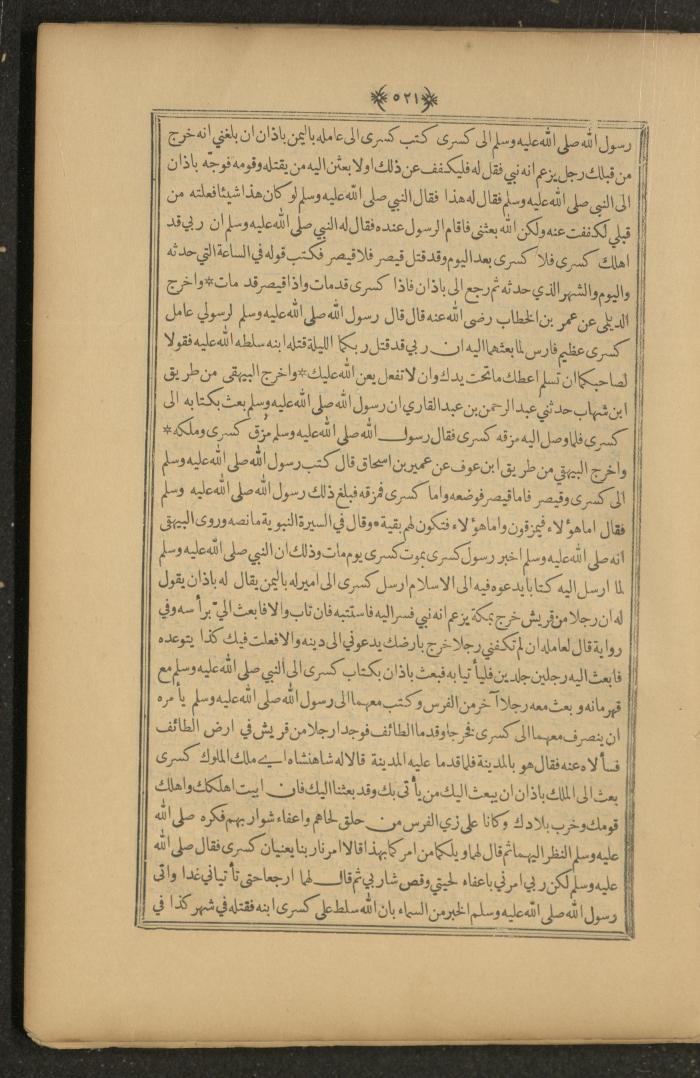 ٥٢١
رسول الله صلى الله عليه وسلم الى كسرى كتب كسرى الى عامله باليمن باذان ان بلغني انه خرج
من قبلك رجل يزعم انه نبي فقل له فليكفف عن ذلك او لا بعثن اليه من يقتله وقومه فوجه باذان
الى النبي صلى الله عليه وسلم فقال له هذا فقال النبي صلى الله عليه وسلم لو كان هذا شيئا فعلته من
قبلي لكففت عنه ولكن الله بعثني فاقام الرسول عنده فقال له النبي صلى الله عليه وسلم ان ربي قد
اهلك كسرى فلا كسرى بعد اليوم وقد قتل قيصر فلا قيصر فكتب قوله في الساعة التي حدثه
واليوم والشهر الذي حدثه ثم رجع الى باذان فاذا كسرى قد مات واذا قيصر قد مات * واخرج
الديلي عن عمر بن الخطاب رضى الله عنه قال قال رسول الله صلى الله عليه وسلم لرسولي عامل
كسرى عظيم فارس لما بعثهما اليه ان ربي قد قتل ربكما الليلة قتله ابنه سلطه الله عليه فقولا
لصاحبكما ان تسلم اعطك ما تحت يدك وان لا تفعل يعن الله عليك * واخرج البيهقي من طريق
ابن شهاب حدثني عبد الرحمن بن عبد القاري ان رسول الله صلى الله عليه وسلم بعث بكتابه الى
كسرى فلما وصل اليه مزقه كسرى فقال رسول الله صلى الله عليه وسلم مُزق كسرى وملكه *
واخرج البيهقي من طريق ابن عوف عن عمير بن اسحاق قال كتب رسول الله صلى الله عليه وسلم
الى كسرى وقيصر فاما قيصر فوضعه واما كسرى فمزقه فبلغ ذلك رسول الله صلى الله عليه وسلم
فقال اما هؤلاء فيمزقون واما هؤلاء فتكون لهم بقية * وقال في السيرة النبوية ما نصه وروى البيهقي
انه صلى الله عليه وسلم اخبر رسول كسرى بموت كسرى يوم مات وذلك ان النبي صلى الله عليه وسلم
لما ارسل اليه كتابا يدعوه فيه الى الاسلام ارسل كسرى الى اميرله باليمن يقال له باذان يقول
له ان رجلا من قريش خرج بمكة يزعم انه نبي فسر اليه فاستتبه فان تاب والا فابعث اليّ برأسه وفي
رواية قال لعامله ان لم تكفني رجلا خرج بارضك يدعوني الى دينه والا فعلت فيك كذا يتوعده
فابعث اليه رجلين جلدين فليأتيا به فبعث باذان بكتاب كسرى الى النبي صلى الله عليه وسلم مع
قهرمانه وبعث معه رجلا آخر من الفرس وكتب معهما الى رسول الله صلى الله عليه وسلم يأمره
ان ينصرف معهما الى كسرى فخرجا وقدما الطائف فوجدا رجلا من قريش في ارض الطائف
فسألاه عنه فقال هو بالمدينة فلما قدما عليه المدينة قالا له شاهنشاه اي ملك الملوك كسرى
بعث الى الملك باذان ان يبعث اليك من يأتي بك وقد بعثنا اليك فان ابيت اهلكك واهلك
قومك وخرب بلادك وكانا على زي الفرس من حلق لحاهم واعفاء شواربهم فكره صلى الله
عليه وسلم النظر اليهما ثم قال لهما ويلكما من امركما بهذا قالا امرنا ربنا يعنيان كسرى فقال صلى الله
عليه وسلم لكن ربي امرني باعفاء لحيتي وقص شاربي ثم قال لهما ارجعا حتى تأتياني غدا واتى
رسول الله صلى الله عليه وسلم الخبر من السماء بان الله سلط على كسرى ابنه فقتله في شهر كذا في